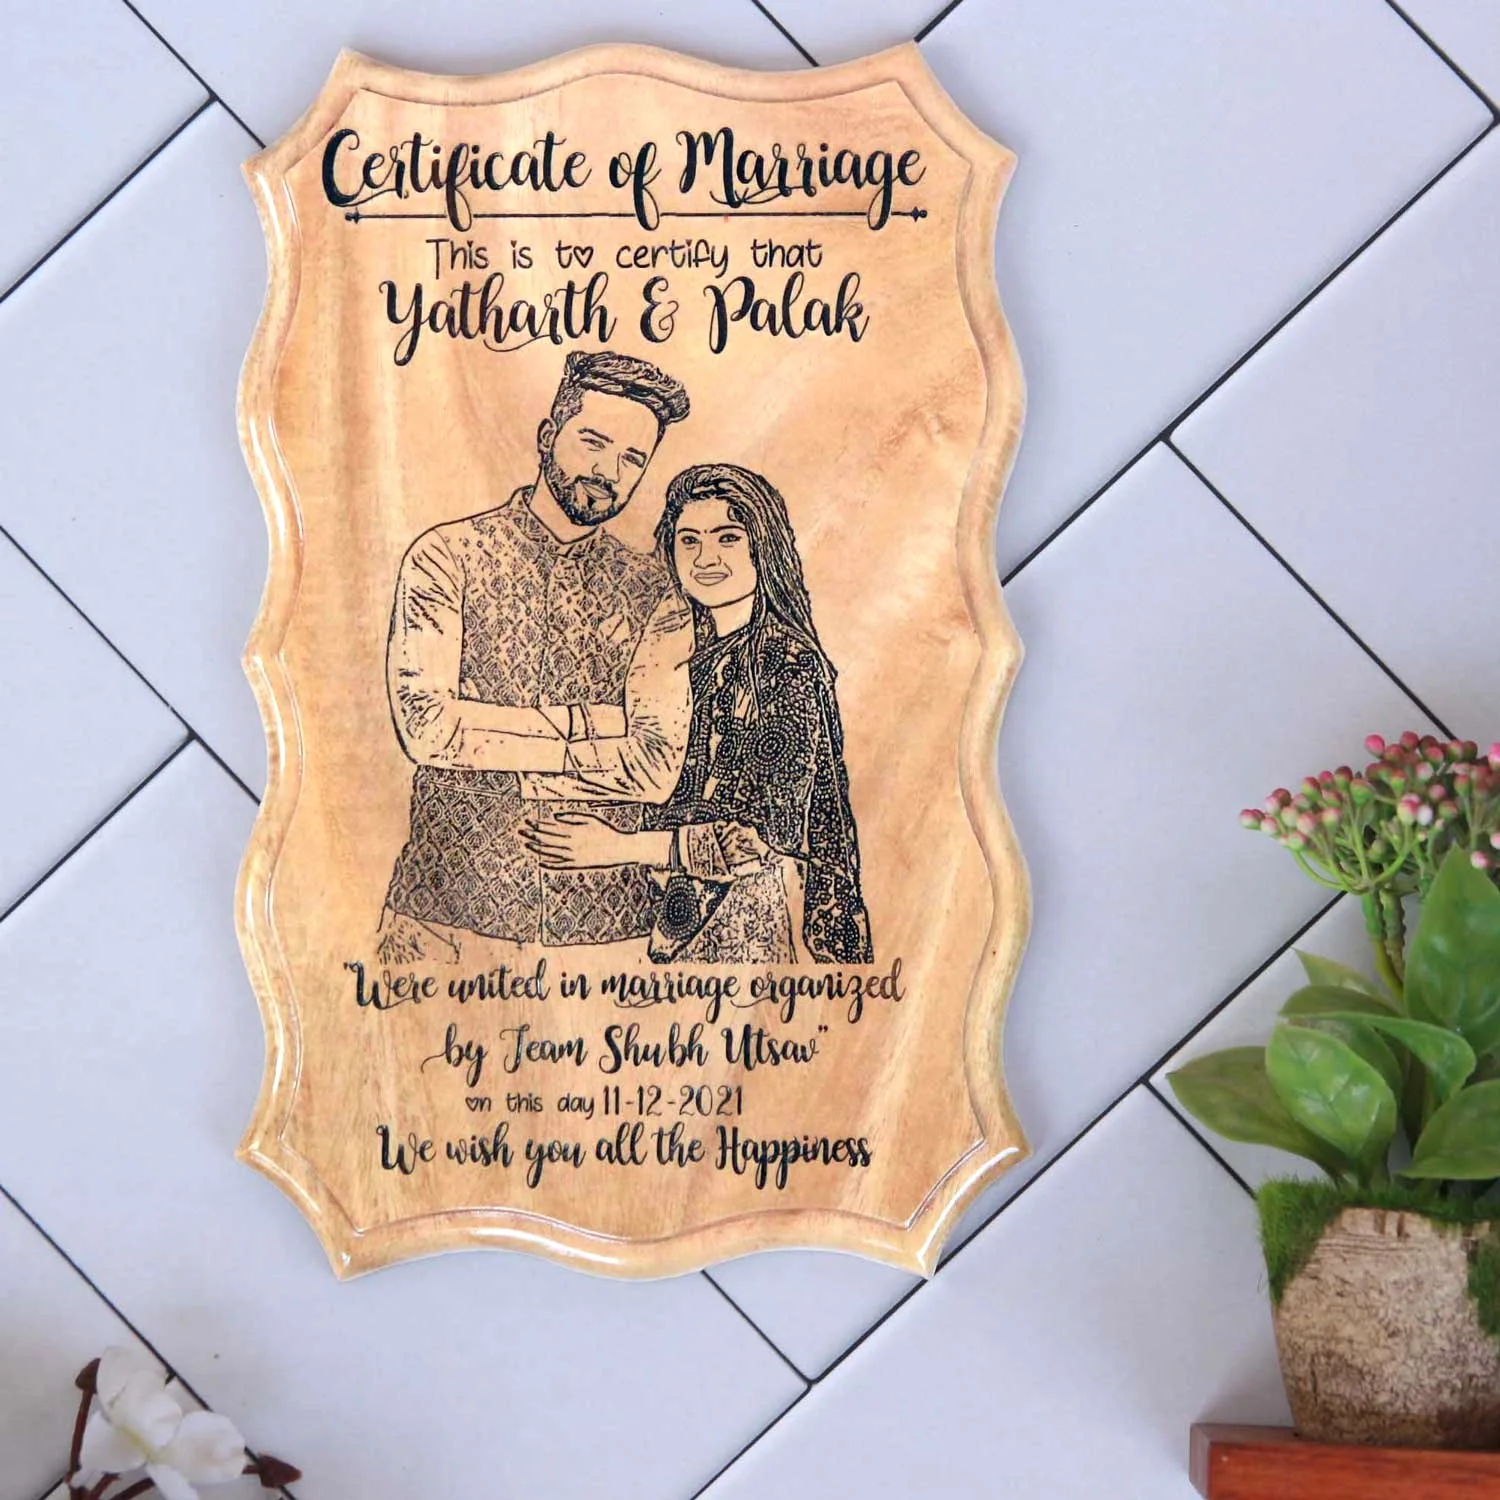 Certificate of Marriage
This is to certify that
Yatharth & Palak
"Were united in marriage organized
by Team Shubh Utsav"
on this day 11-12-2021
We wish you all the Happiness